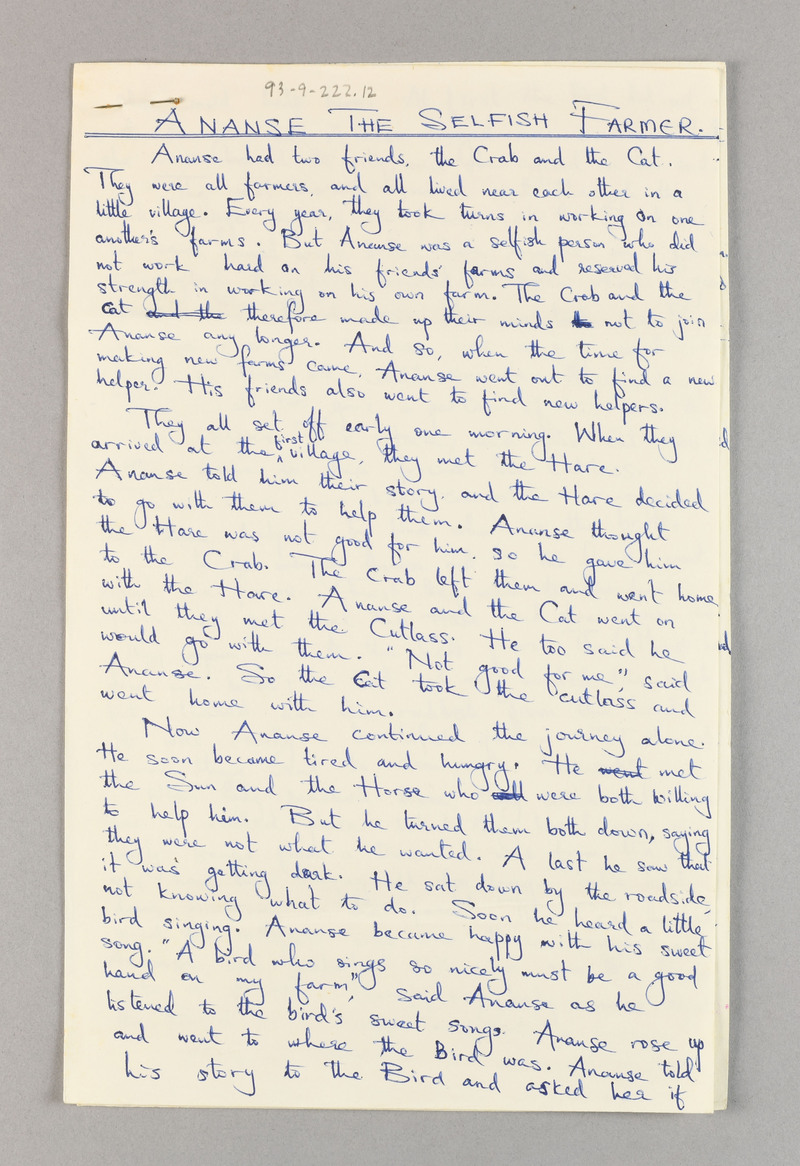 93-9-222.12
ANANSE THE SELFISH FARMER.
Ananse had two friends, the Crab and the Cat.
They were all farmers, and all lived near each other in a
little village. Every year, they took turns in working on one
another's farms. But Ananse was a selfish person who did
not work hard on his friends' farms and reserved his
strength in working on his own farm. The Crab and the
Cat and the therefore made up their minds not to join
Ananse any longer. And so, when the time for
making new farms came, Ananse went out to find a new
helper. His friends also went to find new helpers.
They all set off early one morning. When they
arrived at the first village, they met the Hare.
Ananse told him their story, and the Hare decided
to go with them to help them. Ananse thought
the Hare was not good for him, so he gave him
to the Crab. The Crab left them and went home
with the Hare. Ananse and the Cat went on
until they met the Cutlass. He too said he
would go with them. "Not good for me", said
Ananse. So the Cat took the cutlass and
went home with him.
Now Ananse continued the journey alone.
He soon became tired and hungry. He went met
the Sun and the Horse who were both willing
to help him. But he turned them both down, saying
they were not what he wanted. A last he saw that
it was getting dark. He sat down by the roadside,
not knowing what to do. Soon he heard a little
bird singing. Ananse became happy with his sweet
song. "A bird who sings so nicely must be a good
hand on my farm", said Ananse as he
listened to the bird's sweet songs. Ananse rose up
and went to where the Bird was. Ananse told
his story to the Bird and asked her if